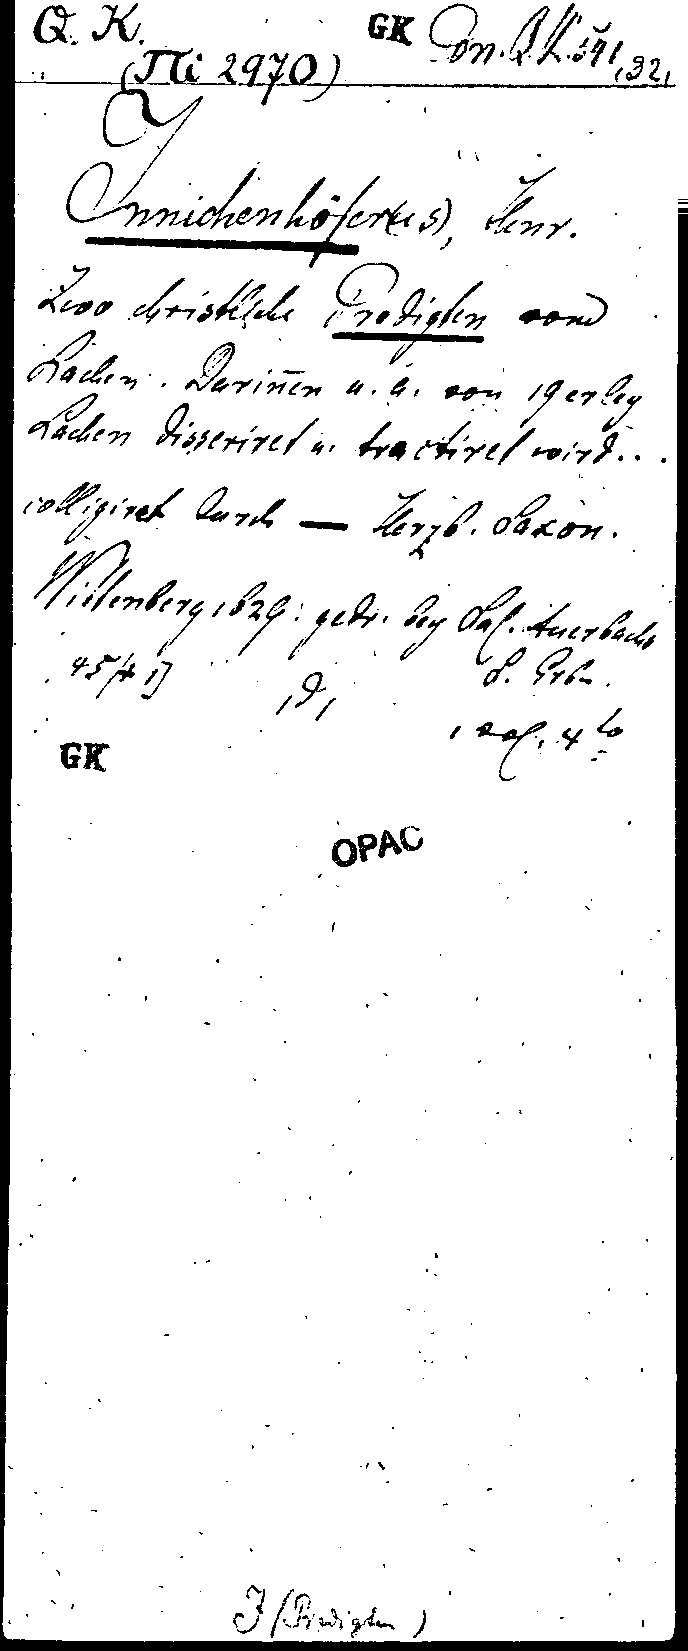 Q. K. GK Don. Q. K. 541,32,
(Mi 2970)
J
Innichenhöfer(us), Henr.
Zwo christliche Predigten vom
Lachen. Darinen u. a. von 19erley
Lachen disseriret u. tractiret wird...
colligiret durch — Herzb. Saxon.
Wittenberg 1629: gedr. bey Sal. Auerbachs
S. Erbn.
,d,
4to
GK
OPAC
J (Predigten)